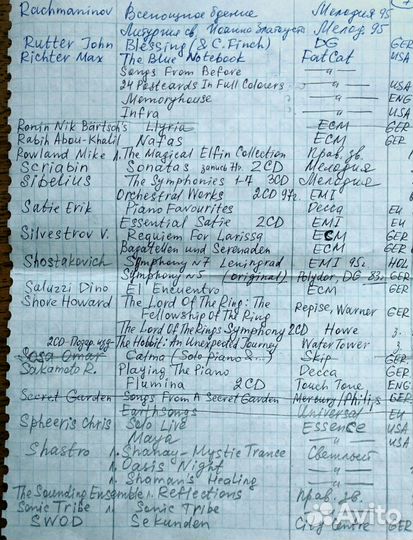 Rachmaninov Всенощное бдение Мелодия 95
Литургия св. Иоанна Златоуста Мелод. 95
Rutter John Blessing (& C. Finch) DG GER
Richter Max The Blue Notebook FatCat USA
Songs From Before —〃—
24 Postcards In Full Colours —〃— USA
Memoryhouse —〃— ENG
Infra —〃— USA
Ronin Nik Bärtsch's Llyria ECM GER
Rabih Abou-Khalil Nafas ECM GER
Rowland Mike л. The Magical Elfin Collection Прав. зв.
Scriabin Sonatas 2CD Мелодия
Sibelius The Symphonies 1-7 3CD Мелодия
Orchestral Works 2CD 97г. EMI
Satie Erik Piano Favourites Decca EU
Essential Satie 2CD EMI EU
Silvestrov V. Requiem For Larissa ECM GER
Bagatellen und Serenaden ECM GER
Shostakovich Symphony N7 Leningrad EMI 95г. HOL
Symphony N5 (original) Polydor, DG 83г. GER
Saluzzi Dino El Encuentro ECM GER
Shore Howard The Lord Of The Ring: The
Fellowship Of The Ring Repise, Warner GER
The Lord Of The Rings Symphony 2CD Howe 3.
2CD-Подар. изд. The Hobbit: An Unexpected Journey WaterTower 3.
Sosa Omar Calma (Solo Piano &...) Skip GER
Sakamoto R. Playing The Piano Decca GER
Flumina 2CD Touch Tone ENG
Secret Garden Songs From A Secret Garden Mercury/Philips GER
Earthsongs Universal EU
Spheeris Chris Solo Live Essence USA
Maya —〃— USA
Shastro л. Shahay-Mystic Trance Светлый
л. Oasis Night —〃—
л. Shaman's Healing —〃—
The Sounding Ensemble л. Reflections Прав. зв.
Sonic Tribe л. Sonic Tribe —〃—
SWOD Sekunden City Centre GER
Avito